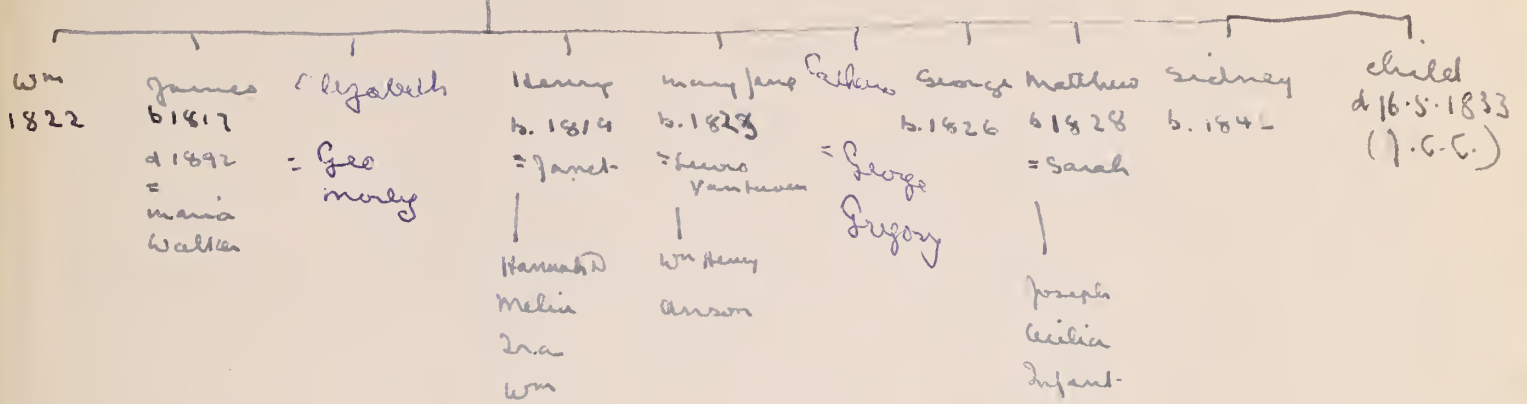 Wm
1822
James
b 1817
d 1892
=
Maria
Walker
Elizabeth
= Geo
Morley
Henry
b. 1819
= Janet
Hannah D
Melia
Ira
Wm
Mary Jane
b. 1823
= Lewis
Wm Henry
Anson
= George
Gregory
George
b. 1826
Matthew
b 1828
= Sarah
Joseph
Cecilia
Infant
Sidney
b. 184
child
d 16.5.1833